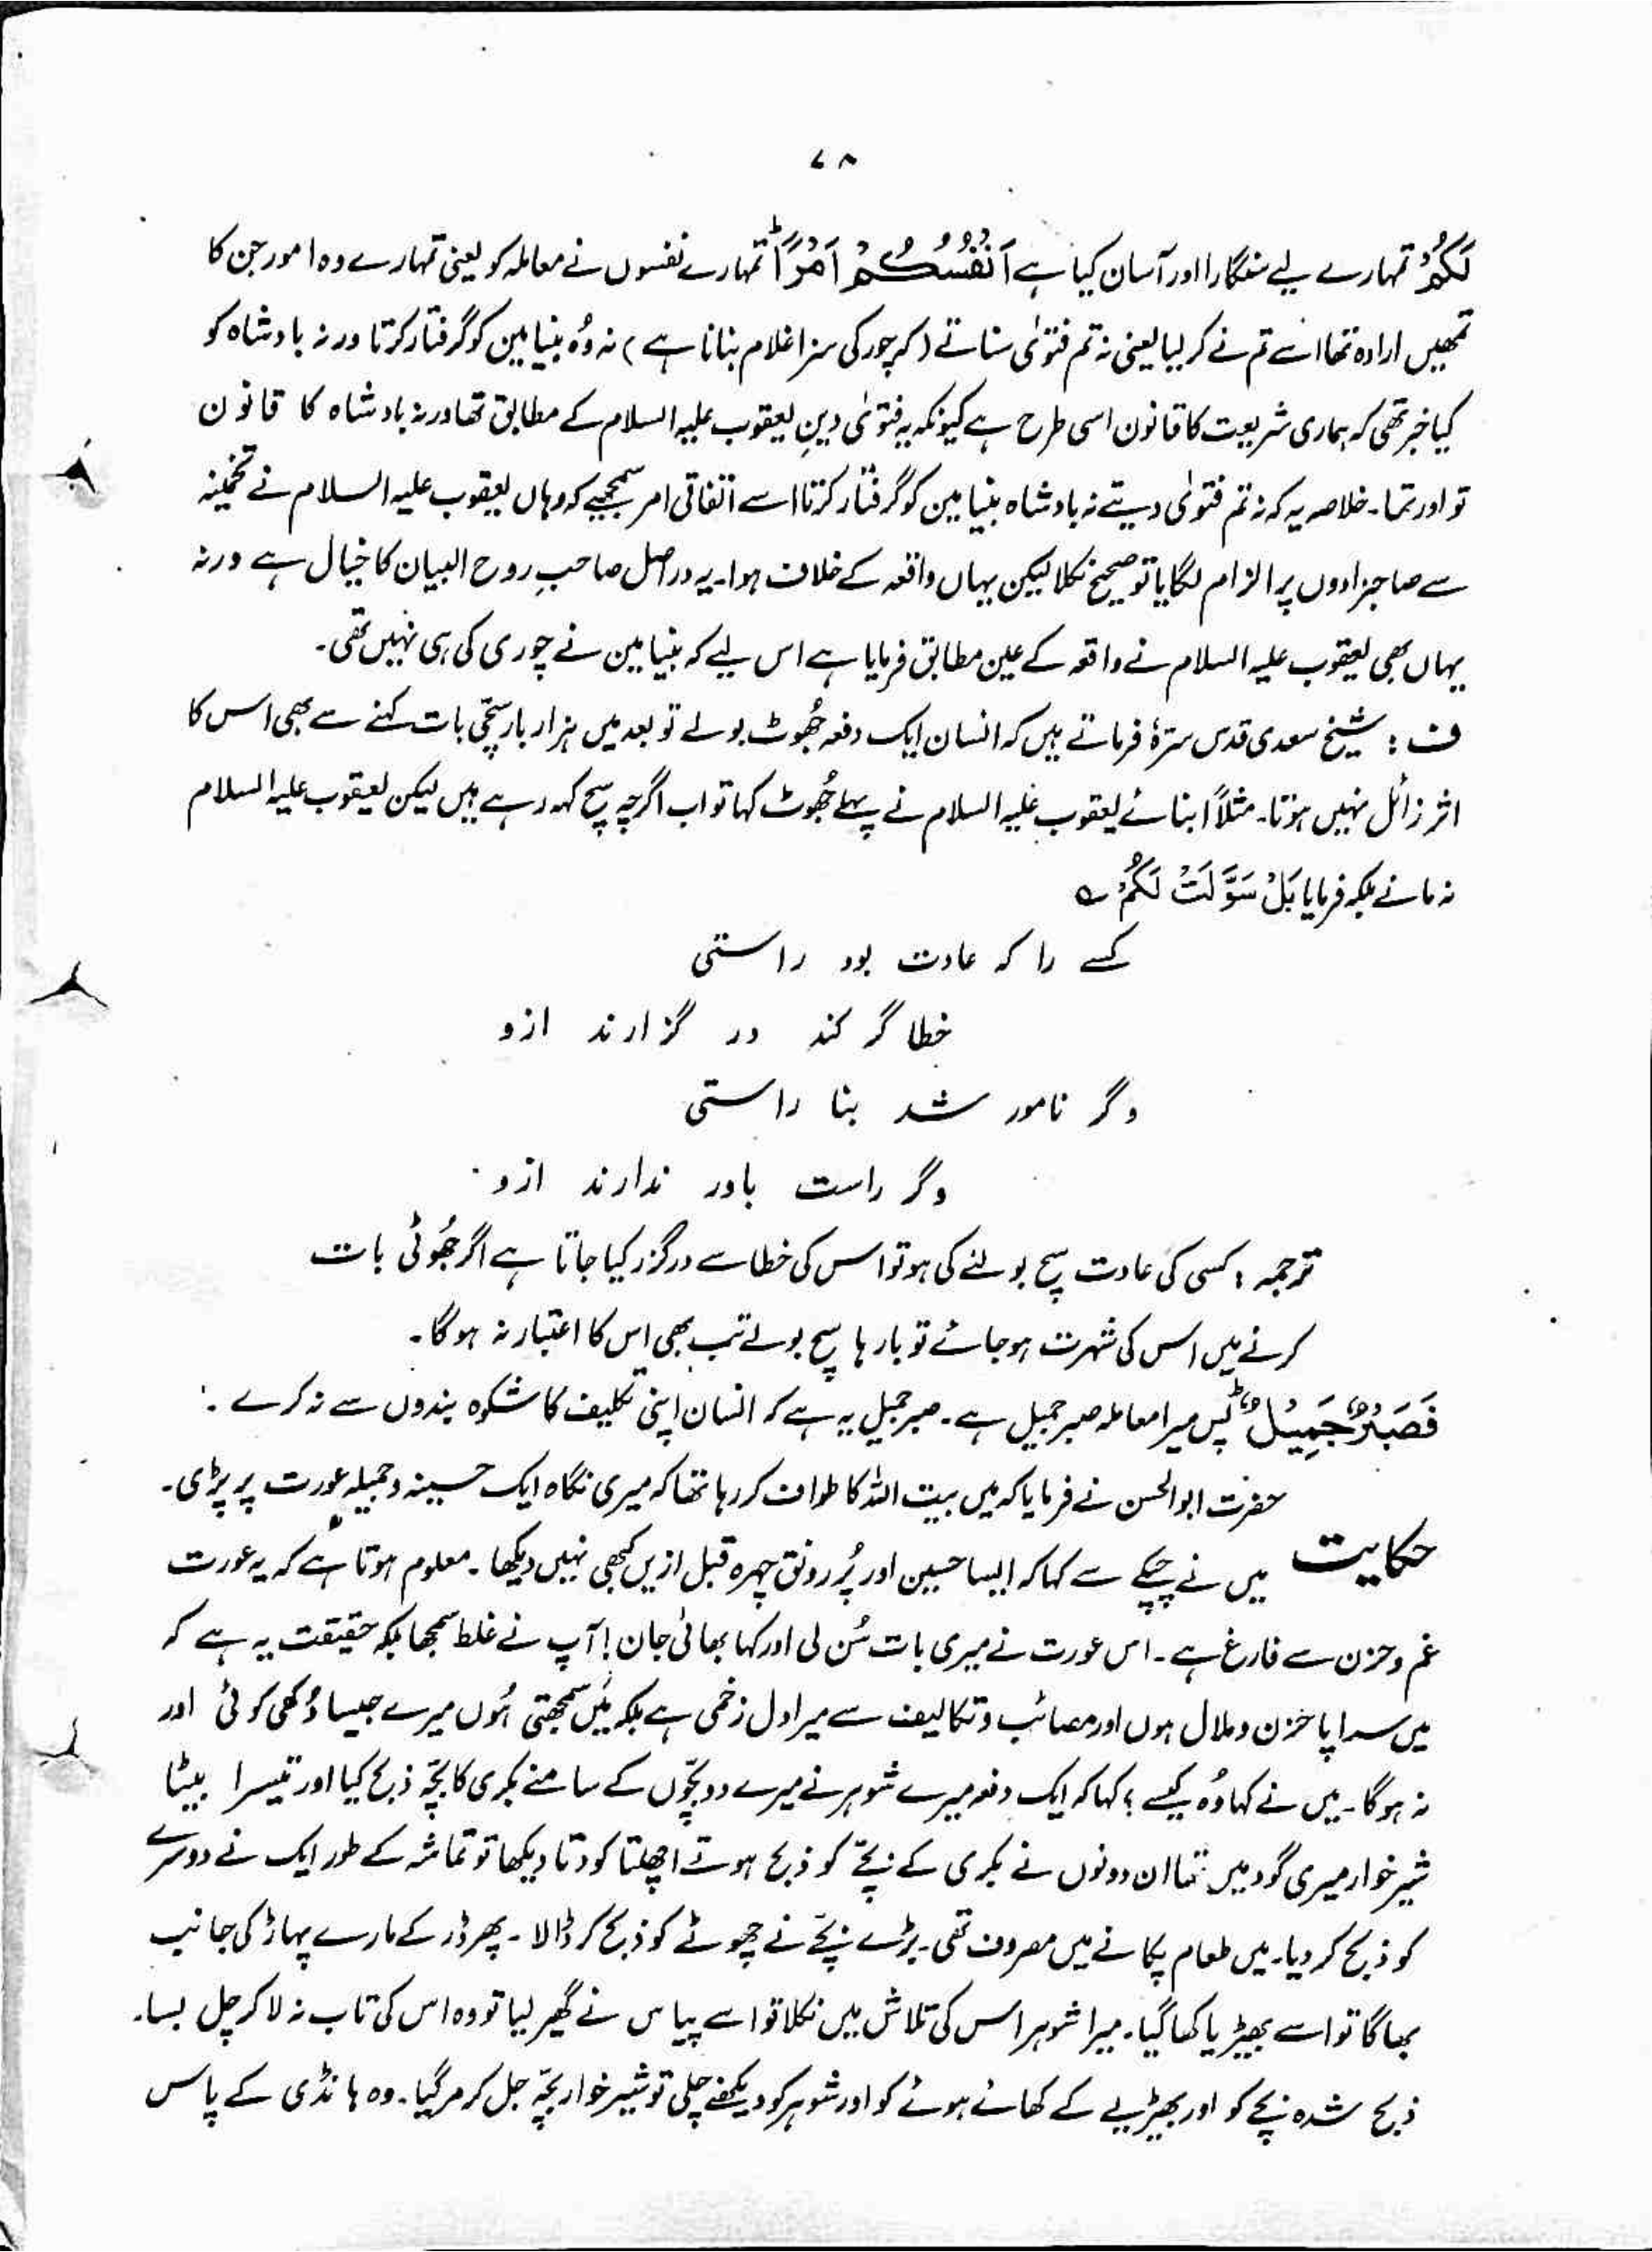 ۷۸
لَكُمْ تمہارے لیے سنگارا اور آسان کیا ہے اَنْفُسُكُمْ اَمْرًاؕ تمہارے نفسوں نے معاملہ کو یعنی تمہارے وہ امور جن کا
تمھیں ارادہ تھا اسے تم نے کر لیا یعنی نہ تم فتوٰی سناتے (کہ چور کی سزا غلام بنانا ہے) نہ وُہ بنیامین کو گرفتار کرتا ورنہ بادشاہ کو
کیا خبر تھی کہ ہماری شریعت کا قانون اسی طرح ہے کیونکہ یہ فتوٰی دینِ یعقوب علیہ السلام کے مطابق تھا ورنہ بادشاہ کا قانون
تو اور تھا۔ خلاصہ یہ کہ نہ تم فتوٰی دیتے نہ بادشاہ بنیامین کو گرفتار کرتا اسے اتفاقی امر سمجھیے کہ وہاں یعقوب علیہ السلام نے تخمینہ
سے صاحبزادوں پر الزام لگایا تو صحیح نکلا لیکن یہاں واقعہ کے خلاف ہوا۔ یہ دراصل صاحبِ روح البیان کا خیال ہے ورنہ
یہاں بھی یعقوب علیہ السلام نے واقعہ کے عین مطابق فرمایا ہے اس لیے کہ بنیامین نے چوری کی ہی نہیں تھی۔
ف : شیخ سعدی قدس سترہٗ فرماتے ہیں کہ انسان ایک دفعہ جُھوٹ بولے تو بعد میں ہزار بار سچّی بات کہنے سے بھی اس کا
اثر زائل نہیں ہوتا۔ مثلاً ابنائے یعقوب علیہ السلام نے پہلے جُھوٹ کہا تو اب اگرچہ سچ کہہ رہے ہیں لیکن یعقوب علیہ السلام
نہ مانے بلکہ فرمایا بَلْ سَوَّلَتْ لَكُمْ ؎
کسے را کہ عادت بود راستی
خطا گر کند در گزارند ازو
وگر نامور شد بنا راستی
وگر راست باور ندارند ازو
ترجمہ : کسی کی عادت سچ بولنے کی ہو تو اس کی خطا سے درگزر کیا جاتا ہے اگر جُھوٹی بات
کرنے میں اس کی شہرت ہو جائے تو بار ہا سچ بولے تب بھی اس کا اعتبار نہ ہوگا۔
فَصَبْرٌ جَمِیْلٌؕ پس میرا معاملہ صبر جمیل ہے۔ صبر جمیل یہ ہے کہ انسان اپنی تکلیف کا شکوہ بندوں سے نہ کرے ۔
حضرت ابوالحسن نے فرمایا کہ میں بیت اللہ کا طواف کر رہا تھا کہ میری نگاہ ایک حسینہ و جمیلہ عورت پر پڑی۔
حکایت میں نے چپکے سے کہا کہ ایسا حسین اور پُر رونق چہرہ قبل ازیں کبھی نہیں دیکھا۔ معلوم ہوتا ہے کہ یہ عورت
غم و حزن سے فارغ ہے۔ اس عورت نے میری بات سُن لی اور کہا بھائی جان! آپ نے غلط سمجھا بلکہ حقیقت یہ ہے کہ
میں سراپا حزن و ملال ہوں اور مصائب و تکالیف سے میرا دل زخمی ہے بلکہ مَیں سمجھتی ہُوں میرے جیسا دُکھی کوئی اور
نہ ہوگا۔ میں نے کہا وُہ کیسے ؟ کہا کہ ایک دفعہ میرے شوہر نے میرے دو بچّوں کے سامنے بکری کا بچّہ ذبح کیا اور تیسرا بیٹا
شیر خوار میری گود میں تھا ان دونوں نے بکری کے بچّے کو ذبح ہوتے اچھلتا کودتا دیکھا تو تماشہ کے طور ایک نے دوسرے
کو ذبح کر دیا۔ میں طعام پکانے میں مصروف تھی۔ بڑے بچّے نے چھوٹے کو ذبح کر ڈالا۔ پھر ڈر کے مارے پہاڑ کی جانب
بھاگا تو اسے بھیڑیا کھا گیا۔ میرا شوہر اس کی تلاش میں نکلا تو اسے پیاس نے گھیر لیا تو وہ اس کی تاب نہ لا کر چل بسا۔
ذبح شدہ بچے کو اور بھیڑیے کے کھائے ہوئے کو اور شوہر کو دیکھنے چلی تو شیر خوار بچّہ جل کر مر گیا۔ وہ ہانڈی کے پاس